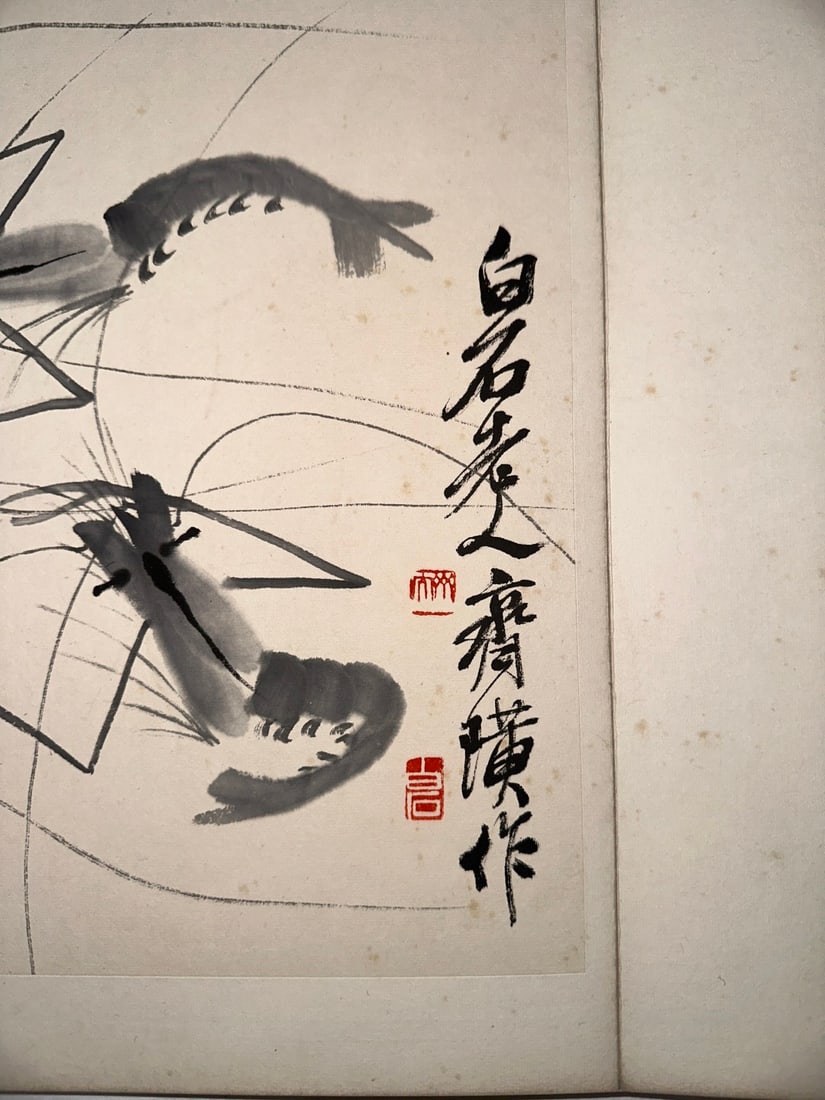 白石老人齊璜作